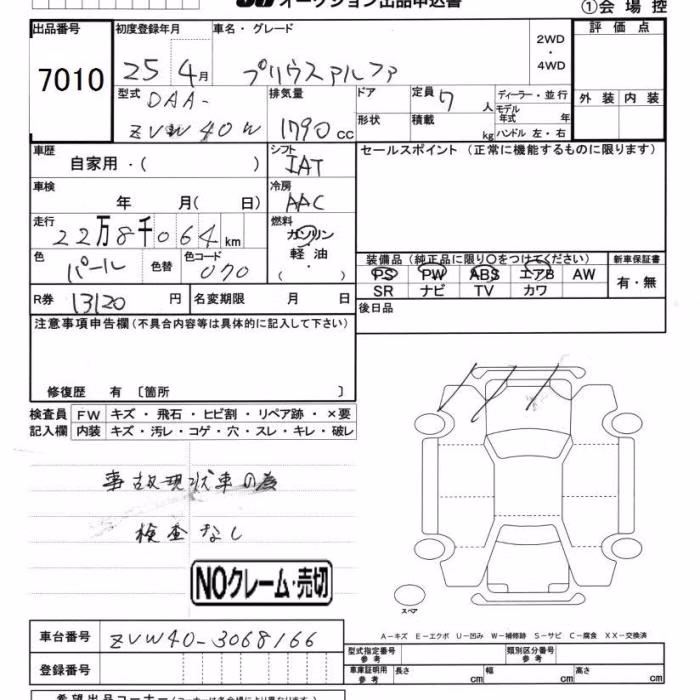 オークション出品申込書
①会 場 控
出品番号 初度登録年月 車名・グレード 評 価 点
7010
25年4月 プリウスアルファ
2WD
・
4WD
型式 DAA-
ZVW40W
排気量
1790cc
ドア
定員 7人
ディーラー・並行
モデル年式 年
外 装 内 装
形状 積載 kg ハンドル 左・右
車歴
自家用・( )
シフト
IAT
セールスポイント(正常に機能するものに限ります)
車検
年 月( 日)
冷房
AAC
走行
22万8千064km
燃料
ガソリン
軽 油
( ・ )
色
パール 色替
色コード
070
装備品(純正品に限り〇をつけてください) 新車保証書
PS PW ABS エアB AW
SR ナビ TV カワ
有・無
R券 13120円 名変期限 月 日
後日品
注意事項申告欄(不具合内容等は具体的に記入して下さい)
修復歴 有 〔箇所 〕
検査員 FW キズ・飛石・ヒビ割・リペア跡・×要
記入欄 内装 キズ・汚レ・コゲ・穴・スレ・キレ・破レ
事故現状車の為
検査なし
NOクレーム・売切
スペア
A−キズ E−エクボ U−凹み W−補修跡 S−サビ C−腐食 XX−交換済
車台番号 ZVW40-3068166
型式指定番号
参 考
類別区分番号
参 考
登録番号
車庫証明用
参 考
長さ cm 幅 cm 高さ cm
希望出品コーナー